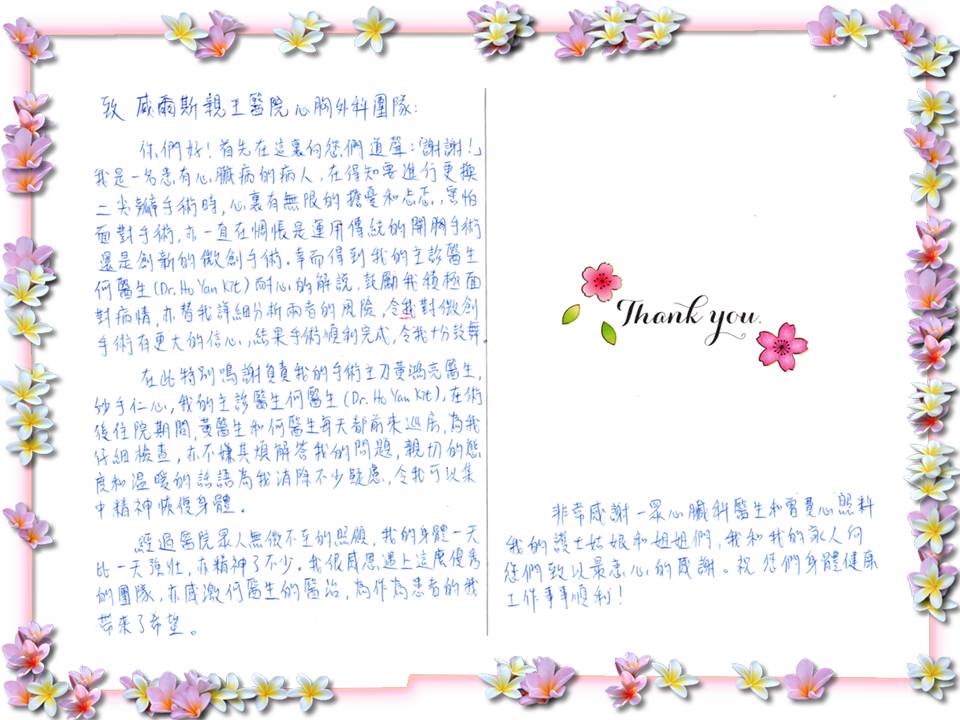 致 威爾斯親王醫院心胸外科團隊:
你們好!首先在這裏向您們道聲:「謝謝!」
我是一名患有心臟病的病人,在得知要進行更換
二尖瓣手術時,心裏有無限的擔憂和忐忑,害怕
面對手術,亦一直在惆悵是運用傳統的開胸手術
還是創新的微創手術。幸而得到我的主診醫生
何醫生(Dr. Ho Yan Kit)耐心的解說,鼓勵我積極面
對病情,亦替我詳細分析兩者的風險,令我對微創
手術有更大的信心,結果手術順利完成,令我十分鼓舞。
在此特別鳴謝負責我的手術主刀黃鴻亮醫生,
妙手仁心,我的主診醫生何醫生(Dr. Ho Yan Kit),在術
後住院期間,黃醫生和何醫生每天都前來巡房,為我
仔細檢查,亦不嫌其煩解答我的問題,親切的態
度和溫暖的話語為我消除不少疑慮,令我可以集
中精神恢復身體。
經過醫院眾人無微不至的照顧,我的身體一天
比一天強壯,亦精神了不少。我很感恩遇上這麼優秀
的團隊,亦感激何醫生的醫治,為作為患者的我
帶來了希望。
Thank you.
非常感謝一眾心臟科醫生和曾悉心照料
我的護士姑娘和姐姐們,我和我的家人向
您們致以最衷心的感謝。祝 您們身體健康
工作事事順利!